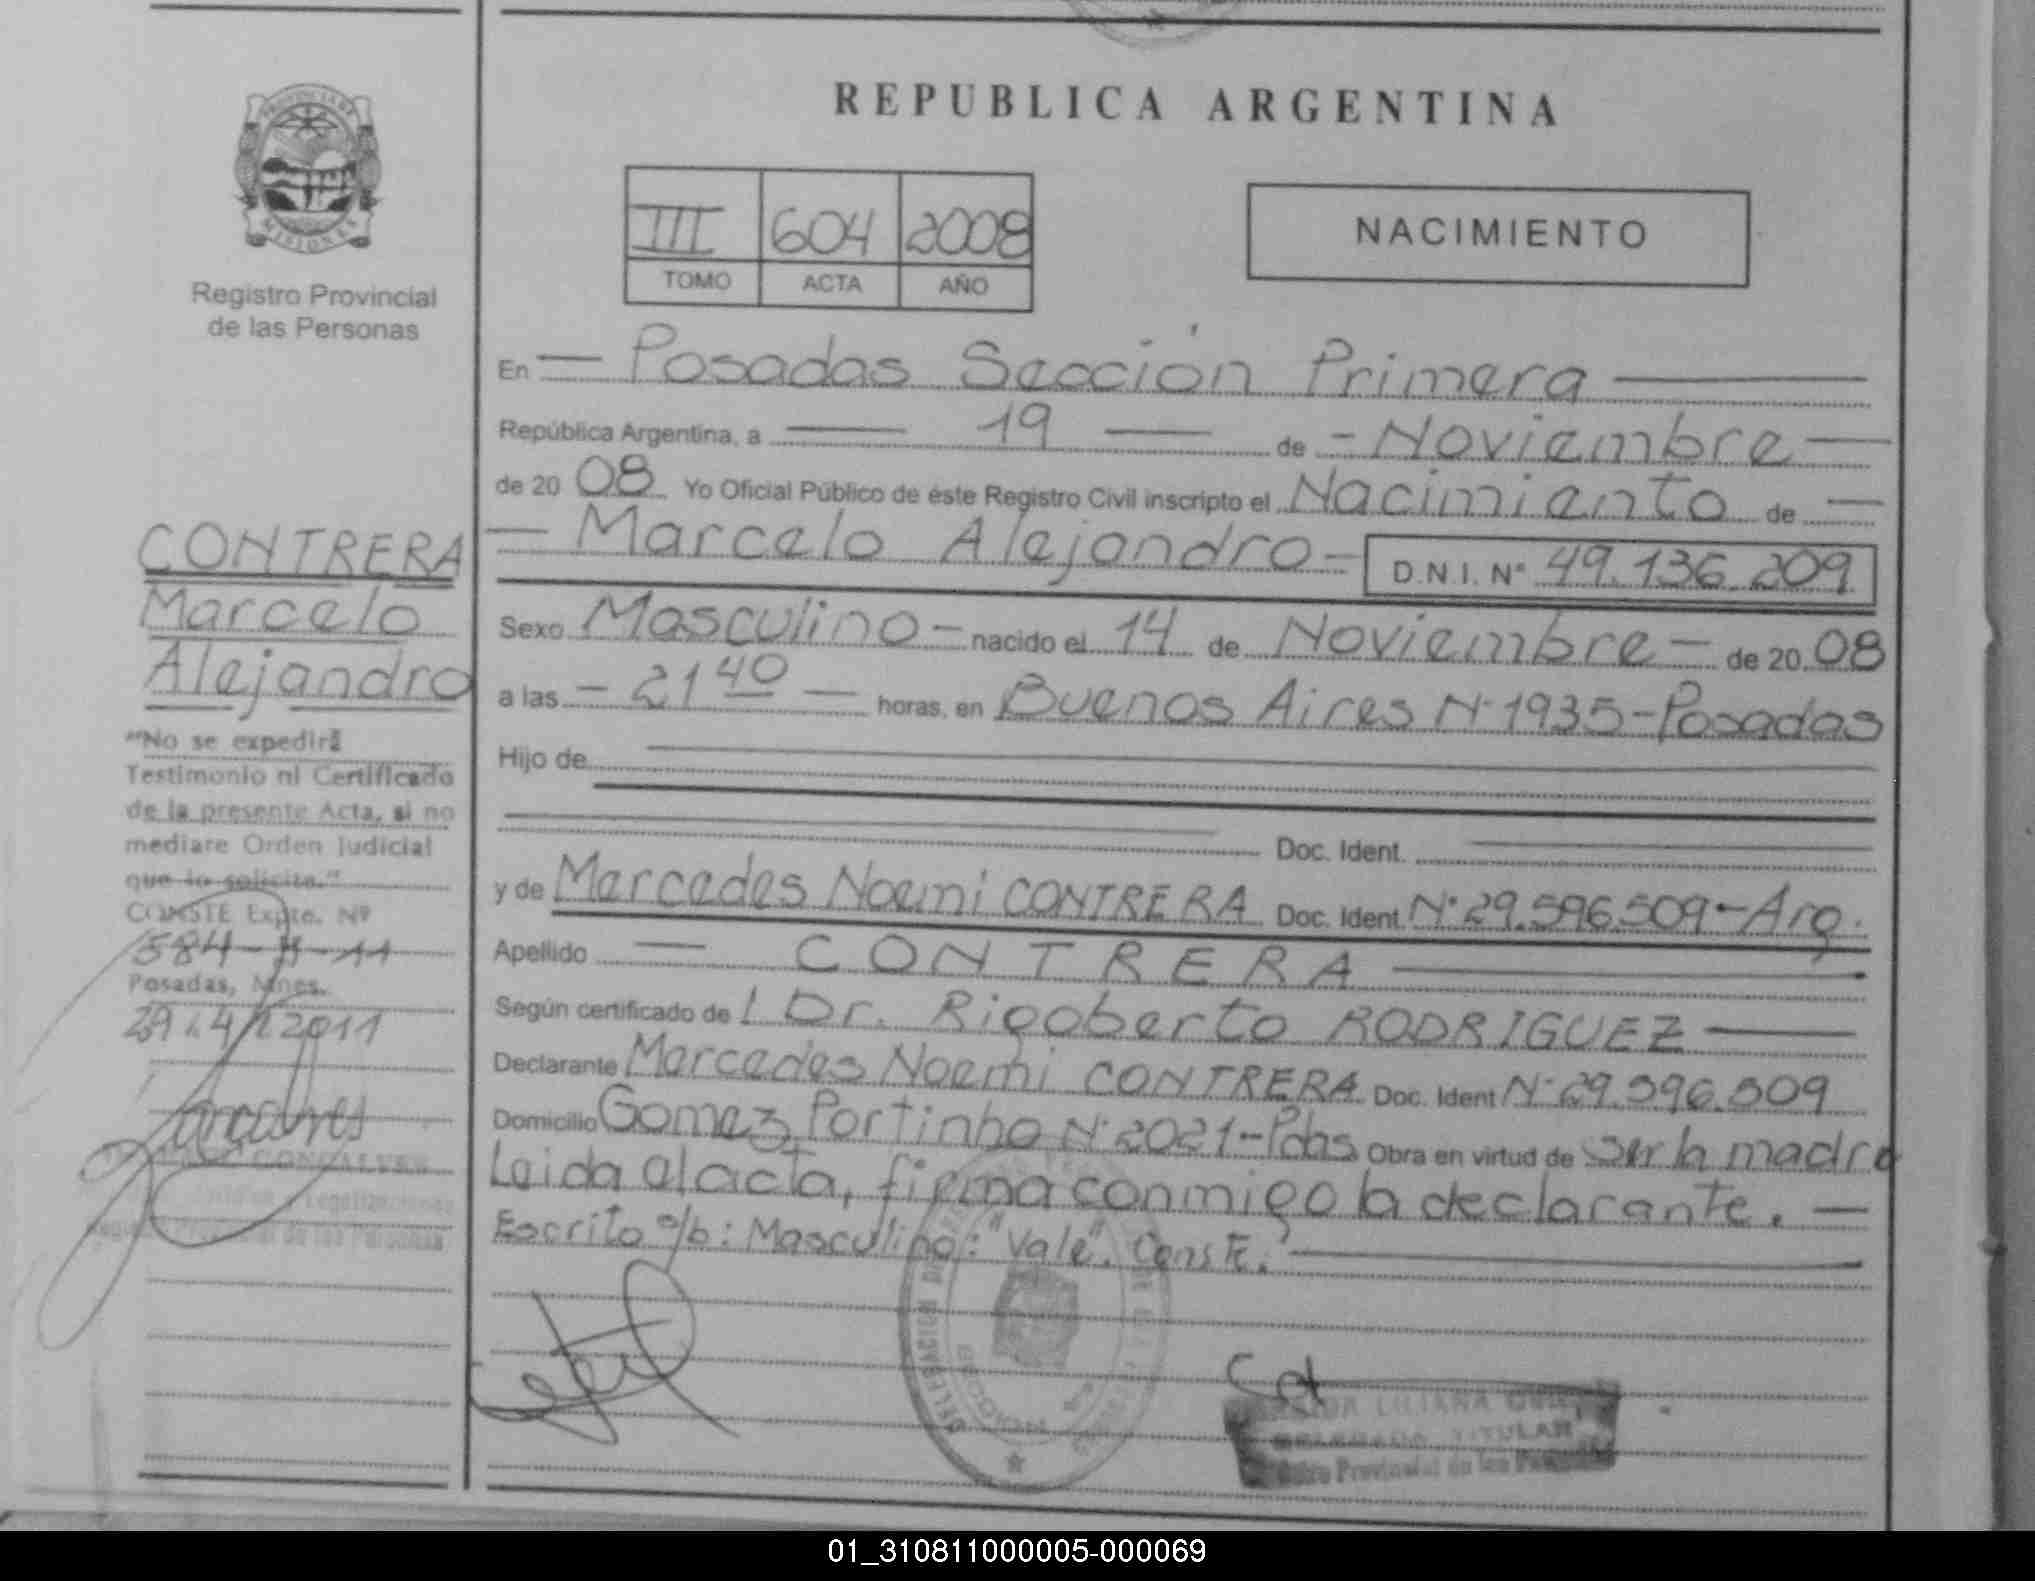 REPUBLICA ARGENTINA
PROVINCIA DE
MISIONES
Registro Provincial
de las Personas
III 604 2008
TOMO ACTA AÑO
NACIMIENTO
En Posadas Sección Primera
República Argentina, a 19 de Noviembre
de 20 08 Yo Oficial Público de éste Registro Civil inscripto el Nacimiento de
Marcelo Alejandro D.N.I. Nº 49.136.209
Sexo Masculino nacido el 14 de Noviembre de 20 08
a las 21 40 horas, en Buenos Aires Nº 1935-Posadas
Hijo de
Doc. Ident.
y de Mercedes Noemi CONTRERA Doc. Ident. Nº 29.596.509-Arg.
Apellido CONTRERA
Según certificado de l Dr. Rigoberto RODRIGUEZ
Declarante Mercedes Noemi CONTRERA Doc. Ident Nº 29.596.509
Domicilio Gomez Portinho Nº 2021-Pdas Obra en virtud de ser la madre
Leida el acta, firma conmigo la declarante.
Escrito s/b: Masculino: "Vale". Conste.
CONTRERA
Marcelo
Alejandro
"No se expedirá
Testimonio ni Certificado
de la presente Acta, si no
mediare Orden Judicial
que lo solicite."
CONSTE Expte. Nº
584-H-11
Posadas, Mnes.
29/4/2011
GONCALVES
Jurídica y Legalizaciones
Registro Provincial de las Personas
DELEGACION
LILIANA
DELEGADA TITULAR
Provincial de las Personas
01_310811000005-000069